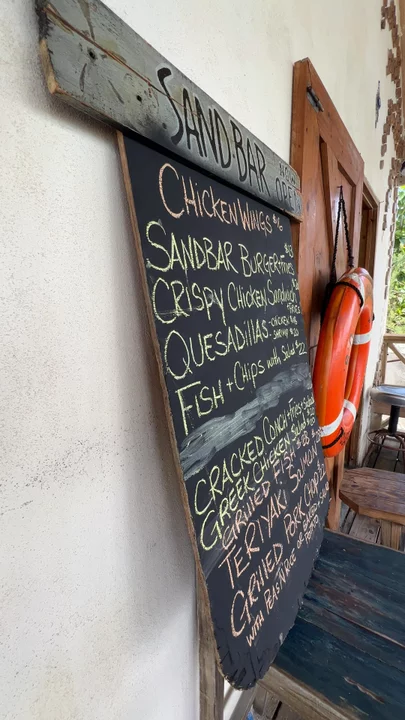 SANDBAR NOW OPEN
CHICKEN WINGS $16
SANDBAR BURGER + FRIES
CRISPY CHICKEN SANDWICH
FRIES
QUESADILLAS - CHICKEN $18
- SHRIMP $20
FISH + CHIPS with Salad $22
CRACKED CONCH + fries + salad
GREEK CHICKEN SALAD
GRILLED FISH
TERIYAKI SALMON
GRILLED PORK CHOP
WITH PEAS N RICE OR BAKED
POTATO